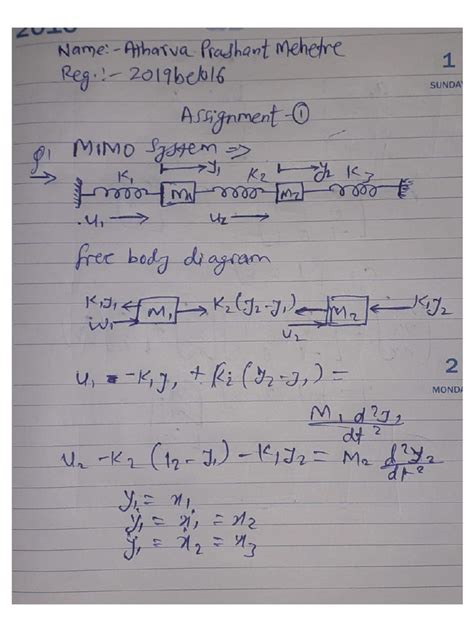 Name:- Atharva Prashant Mehetre
Reg.:- 2019bel016
1
SUNDAY
Assignment-①
Q1 MIMO System ⇒
K1 y1 K2 y2 K3
M1 M2
u1 → u2 →
free body diagram
K1y1 M1 K2(y2-y1) M2 K1y2
u1 u2
2
MONDA
u1 = -K1y1 + K2(y2-y1) =
M1 d²y1/dt²
u2 - K2(y2-y1) - K1y2 = M2 d²y2/dt²
y1 = x1
ẏ1 = ẋ1 = x2
ÿ1 = ẋ2 = x3